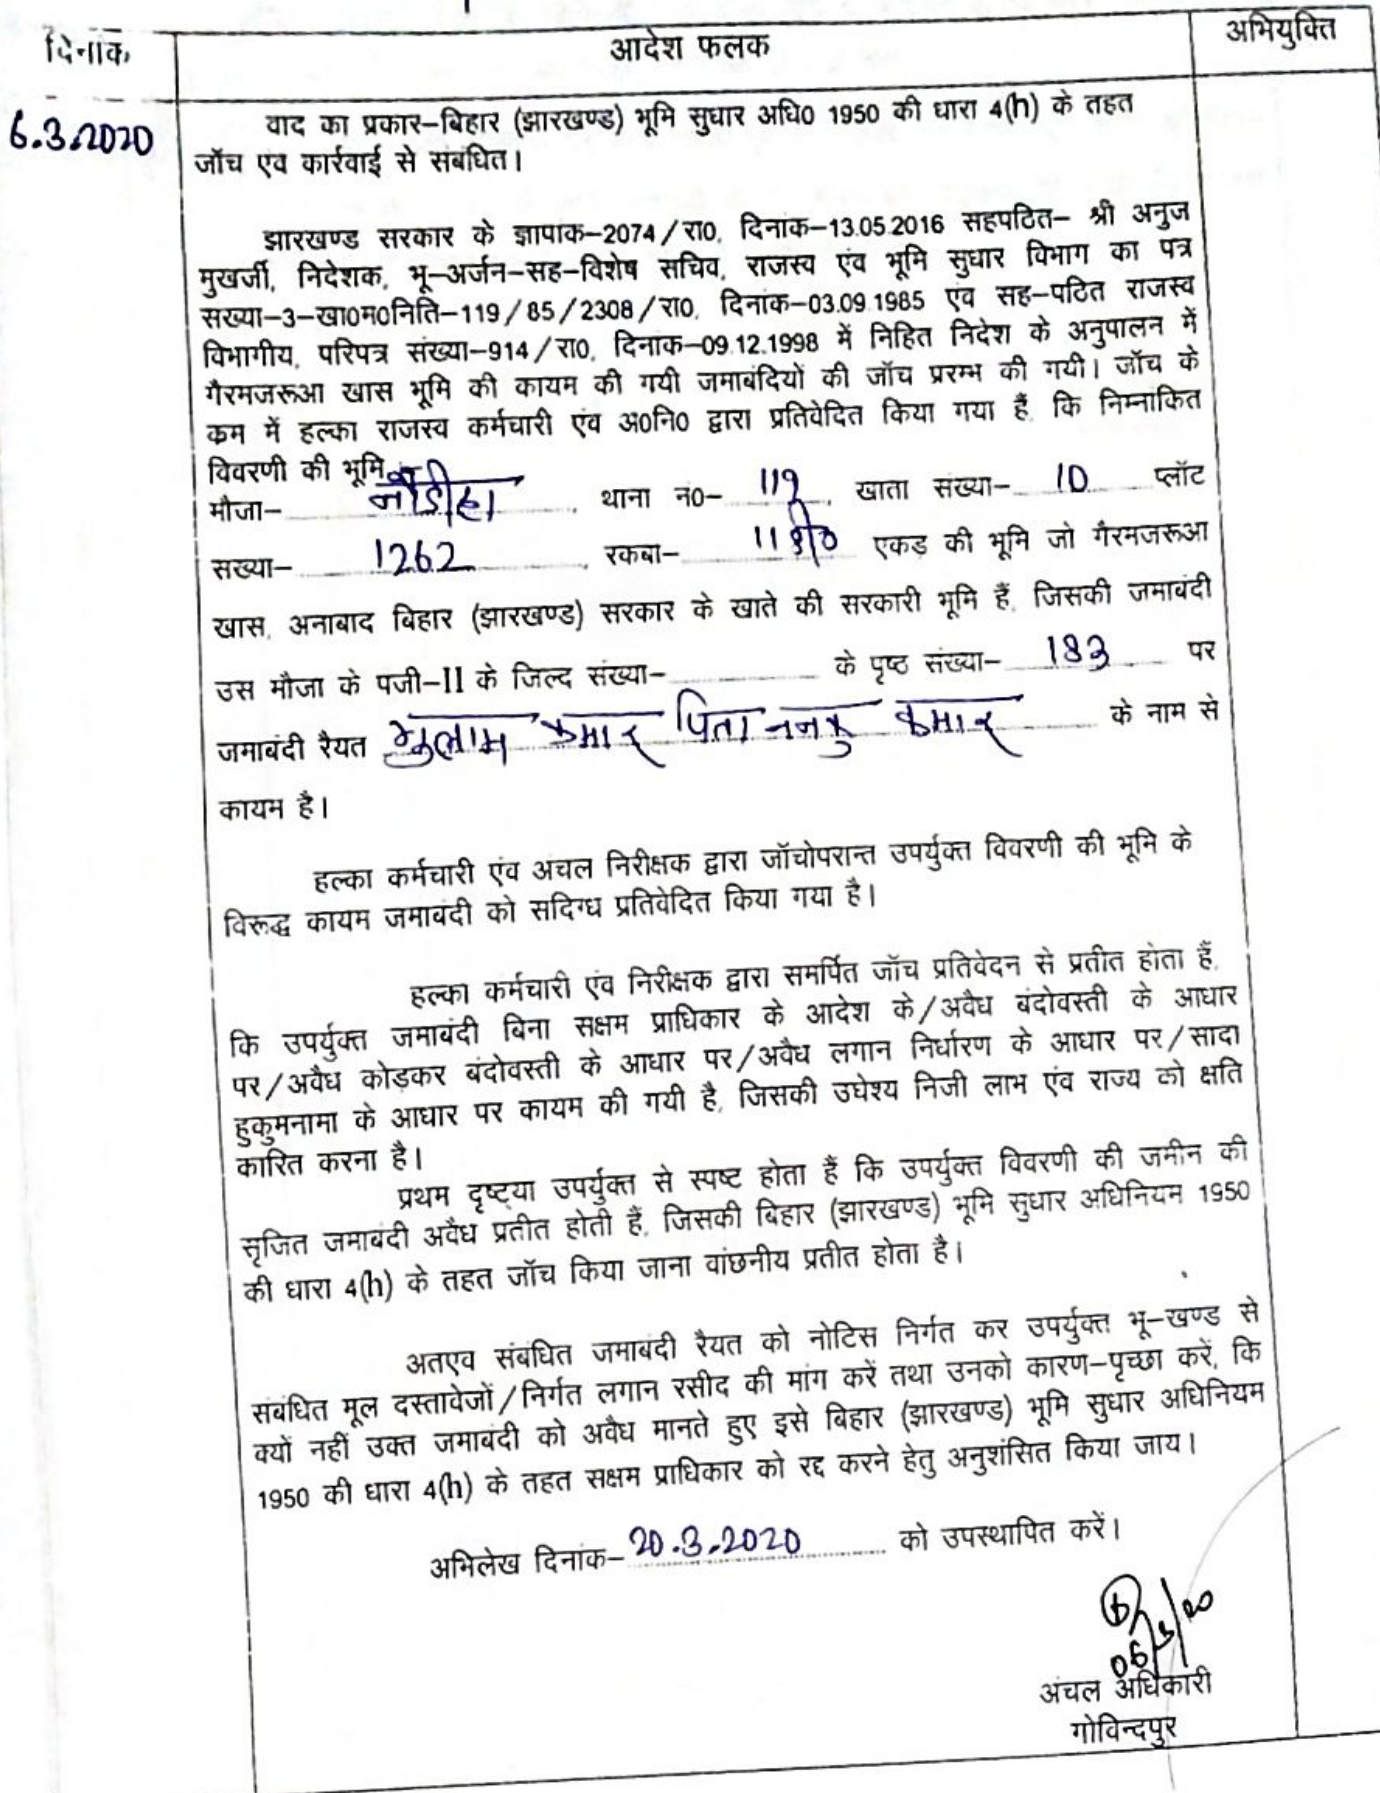 दिनांक
आदेश फलक
अभियुक्ति
6.3.2020
वाद का प्रकार–बिहार (झारखण्ड) भूमि सुधार अधि0 1950 की धारा 4(h) के तहत
जॉच एंव कार्रवाई से संबंधित।
झारखण्ड सरकार के ज्ञापांक–2074/रा0, दिनांक–13.05.2016 सहपठित– श्री अनुज
मुखर्जी, निदेशक, भू–अर्जन–सह–विशेष सचिव, राजस्व एंव भूमि सुधार विभाग का पत्र
सख्या–3–खा0म0निति–119/85/2308/रा0, दिनांक–03.09.1985 एंव सह–पठित राजस्व
विभागीय, परिपत्र संख्या–914/रा0, दिनांक–09.12.1998 में निहित निदेश के अनुपालन में
गैरमजरूआ खास भूमि की कायम की गयी जमाबंदियों की जॉच प्ररम्भ की गयी। जॉच के
कम में हल्का राजस्व कर्मचारी एंव अ0नि0 द्वारा प्रतिवेदित किया गया हैं, कि निम्नांकित
विवरणी की भूमि
मौजा– नौडीहा थाना नं0– 119, खाता संख्या– 10 प्लॉट
सख्या– 1262, रकबा– एकड़ की भूमि जो गैरमजरूआ
खास, अनाबाद बिहार (झारखण्ड) सरकार के खाते की सरकारी भूमि हैं, जिसकी जमाबंदी
उस मौजा के पंजी–II के जिल्द संख्या– के पृष्ठ संख्या– 183 पर
जमाबंदी रैयत कुमार पिता ननकु कुमार के नाम से
कायम है।
हल्का कर्मचारी एंव अंचल निरीक्षक द्वारा जॉचोपरान्त उपर्युक्त विवरणी की भूमि के
विरूद्ध कायम जमाबंदी को संदिग्ध प्रतिवेदित किया गया है।
हल्का कर्मचारी एंव निरीक्षक द्वारा समर्पित जॉच प्रतिवेदन से प्रतीत होता हैं,
कि उपर्युक्त जमाबंदी बिना सक्षम प्राधिकार के आदेश के/अवैध बंदोवस्ती के आधार
पर/अवैध कोड़कर बंदोवस्ती के आधार पर/अवैध लगान निर्धारण के आधार पर/सादा
हुकुमनामा के आधार पर कायम की गयी है, जिसकी उघेश्य निजी लाभ एंव राज्य को क्षति
कारित करना है।
प्रथम दृष्ट्या उपर्युक्त से स्पष्ट होता हैं कि उपर्युक्त विवरणी की जमीन की
सृजित जमाबंदी अवैध प्रतीत होती हैं, जिसकी बिहार (झारखण्ड) भूमि सुधार अधिनियम 1950
की धारा 4(h) के तहत जॉच किया जाना वांछनीय प्रतीत होता है।
अतएव संबंधित जमाबंदी रैयत को नोटिस निर्गत कर उपर्युक्त भू–खण्ड से
संबंधित मूल दस्तावेजों/निर्गत लगान रसीद की मांग करें तथा उनको कारण–पृच्छा करें, कि
क्यों नहीं उक्त जमाबंदी को अवैध मानते हुए इसे बिहार (झारखण्ड) भूमि सुधार अधिनियम
1950 की धारा 4(h) के तहत सक्षम प्राधिकार को रद्द करने हेतु अनुशंसित किया जाय।
अभिलेख दिनांक– 20.3.2020 को उपस्थापित करें।
अंचल अधिकारी
गोविन्दपुर